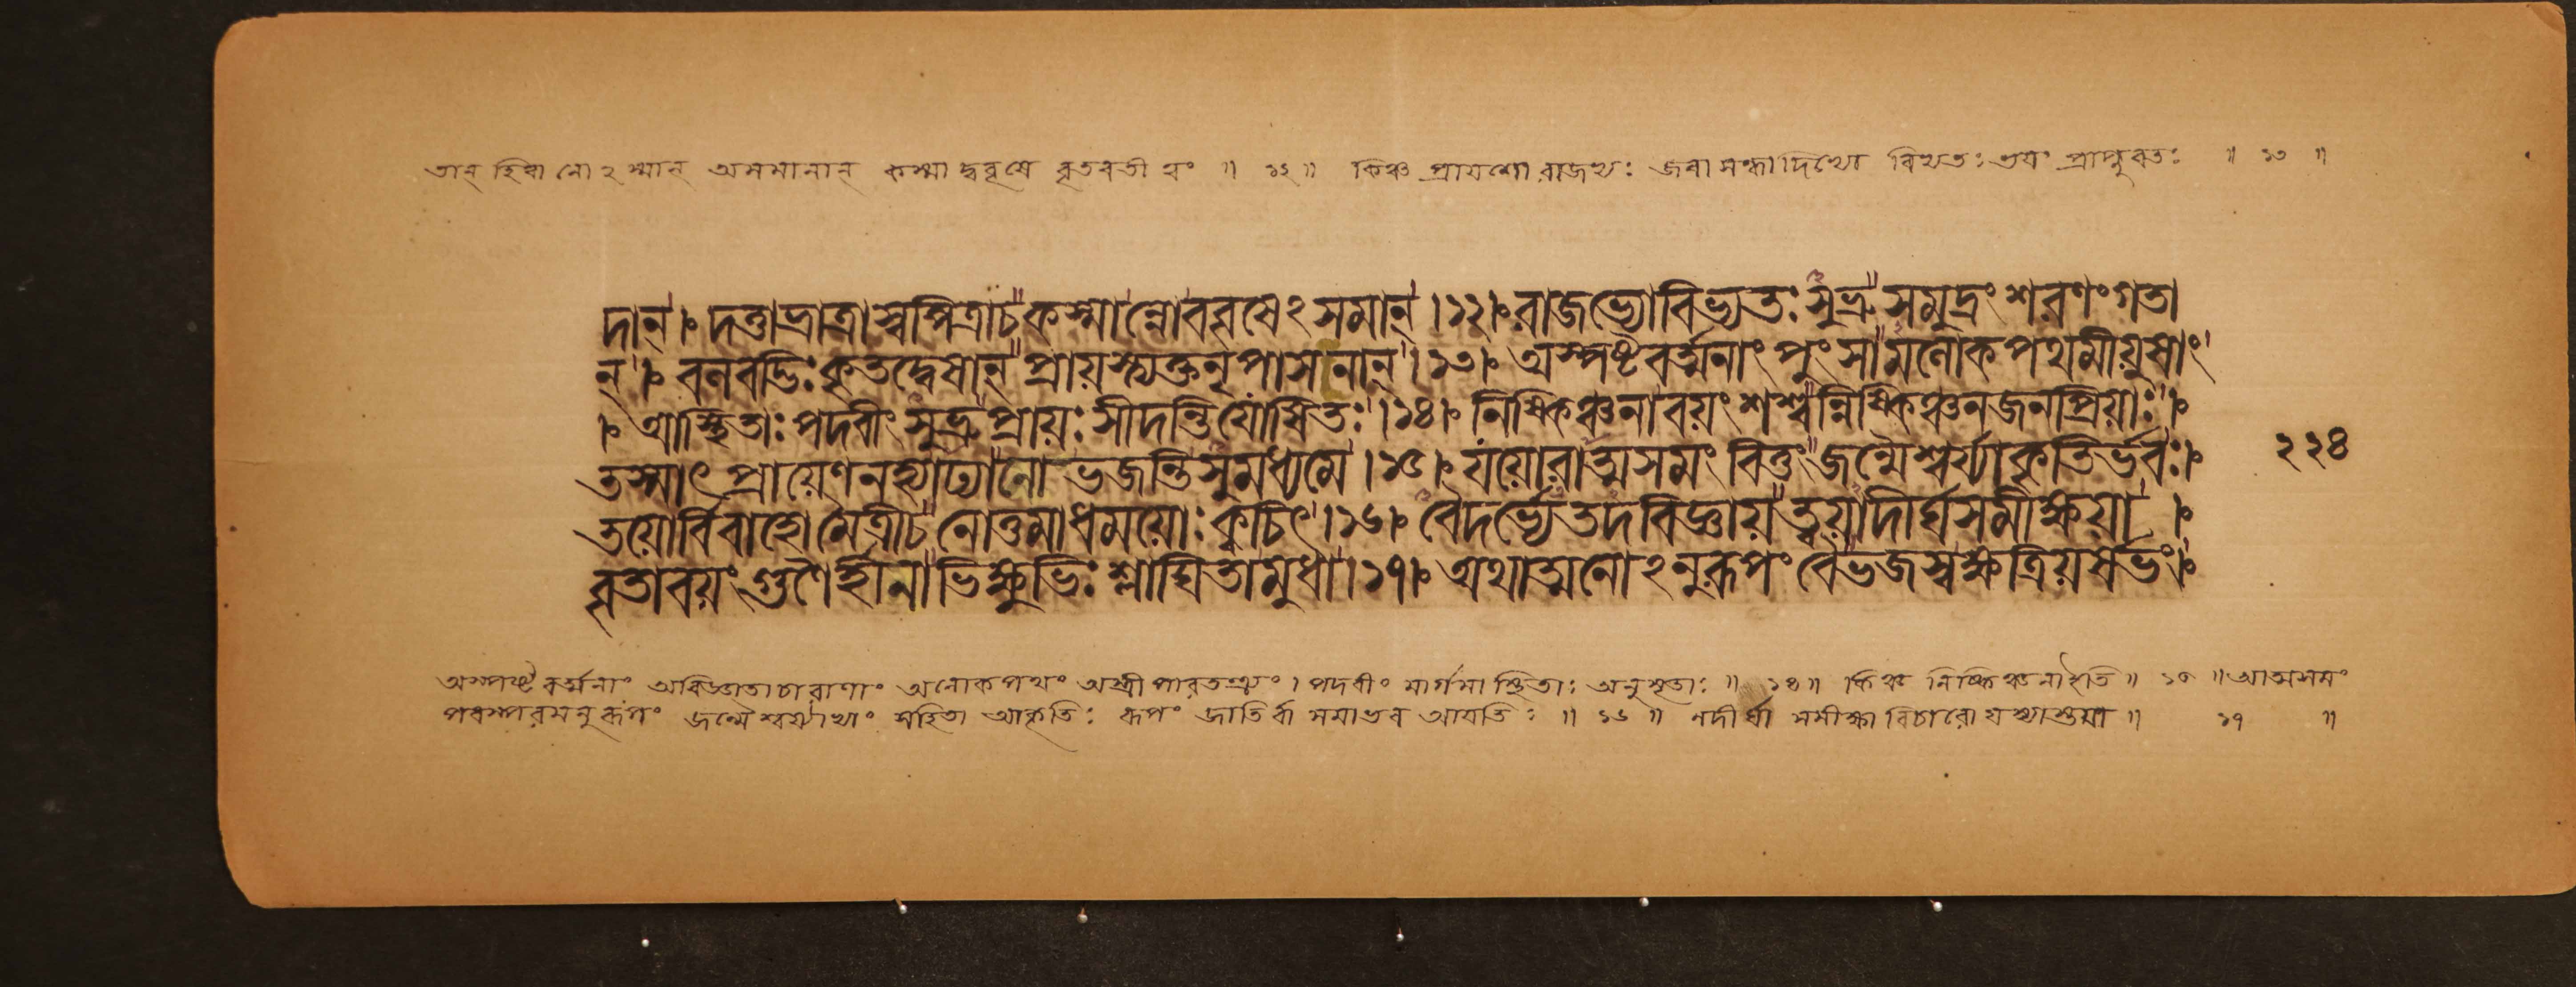 তান্ হিত্বা নোঽস্মান্ অসমানান্ কস্মাদ্ববৃষে বৃতবতী ত্বং ॥ ১২ ॥ কিঞ্চ প্রায়শো রাজভ্যঃ জরাসন্ধাদিভ্যো বিভ্যতঃ ॥ ১৩ ॥
দান্। দত্তাভ্রাত্রাস্বপিত্রাচকস্মান্নোববৃষেঽসমান্।১২। রাজভ্যোবিভ্যতঃসুভ্রুসমুদ্রংশরণংগতা
ন্। বলবদ্ভিঃকৃতদ্বেষান্প্রায়স্ত্যক্তনৃপাসনান্।১৩। অস্পষ্টবর্ত্মনাংপুংসামলোকপথমীয়ুষাং
। আস্থিতাঃপদবীংসুভ্রুপ্রায়ঃসীদন্তিযোষিতঃ।১৪। নিষ্কিঞ্চনাবয়ংশশ্বন্নিষ্কিঞ্চনজনপ্রিয়াঃ।
তস্মাৎপ্রায়েণনহ্যাঢ্যানোভজন্তিসুমধ্যমে।১৫। যয়োরাত্মসমংবিত্তংজন্মৈশ্বর্য্যাকৃতির্ভবঃ।
তয়োর্বিবাহোমৈত্রীচনোত্তমাধময়োঃক্বচিৎ।১৬। বৈদর্ভ্যেতদবিজ্ঞায়ত্বয়াদীর্ঘসমীক্ষয়া ।
২২৪
বৃতাবয়ংগুণৈর্হীনাভিক্ষুভিঃশ্লাঘিতামুধা।১৭। অথাত্মনোঽনুরূপংবৈভজস্বক্ষত্রিয়র্ষভং।
অস্পষ্টবর্ত্মনাং অবিজ্ঞাতাচারাণাং অলোকপথং অস্ত্রীপারতন্ত্র্যং। পদবীং মার্গমাস্থিতাঃ অনুসৃতাঃ ॥ ১৪ ॥ কিঞ্চ নিষ্কিঞ্চনাইতি ॥ ১৫ ॥ আত্মসমং
পরস্পরমনুরূপং জন্মৈশ্বর্য্যাভ্যাং সহিতা আকৃতিঃ রূপং জাতির্বা সমাভব আয়তিঃ ॥ ১৬ ॥ নদীর্ঘা সমীক্ষা বিচারো যস্যাস্তয়া ॥ ১৭ ॥